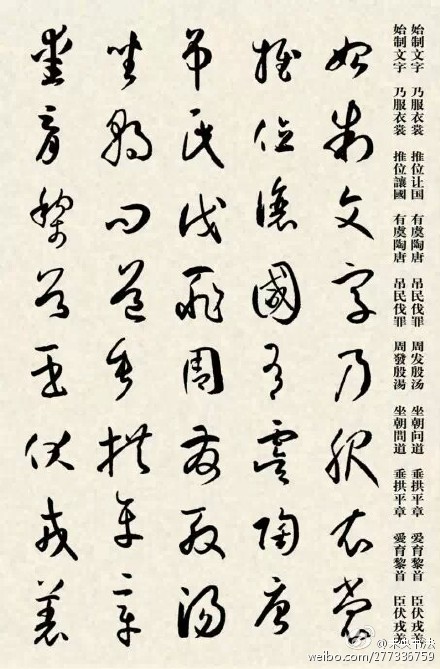 始制文字 乃服衣裳 推位让国 有虞陶唐 吊民伐罪 周发殷汤 坐朝问道 垂拱平章 爱育黎首 臣伏戎羌
始制文字 乃服衣裳 推位讓國 有虞陶唐 吊民伐罪 周發殷湯 坐朝問道 垂拱平章 愛育黎首 臣伏戎羌
始制文字乃服衣裳
推位讓國有虞陶唐
吊民伐罪周發殷湯
坐朝問道垂拱平章
愛育黎首臣伏戎羌
weibo.com/277336759